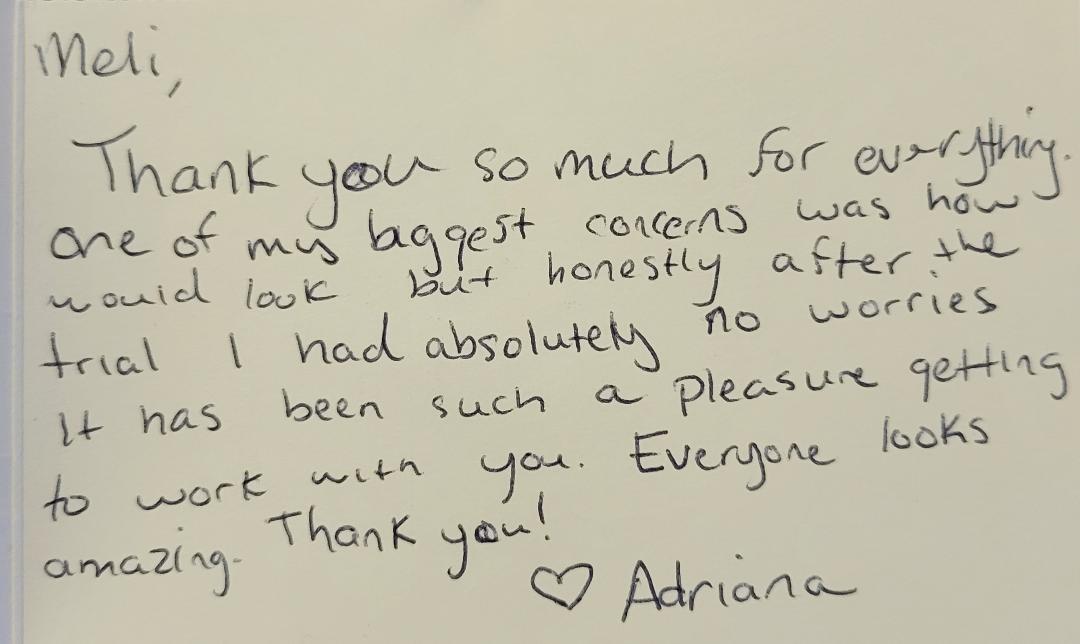 Meli,
Thank you so much for everything.
One of my biggest concerns was how
would look but honestly after the
trial I had absolutely no worries
It has been such a pleasure getting
to work with you. Everyone looks
amazing. Thank you!
♡ Adriana